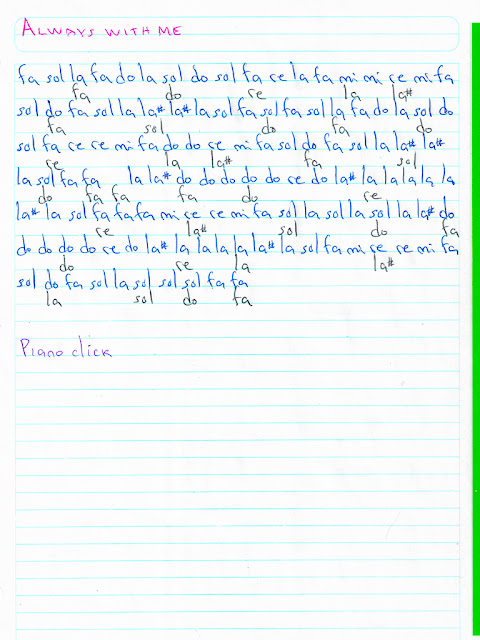 ALWAYS WITH ME
fa sol la fa do la sol do sol fa re la fa mi mi re mi fa
fa do re la la#
sol do fa sol la la# la# la sol fa sol fa sol la fa do la sol do
fa sol do fa do
sol fa re re mi fa do do re mi fa sol do fa sol la la# la#
re la la# fa sol
la sol fa fa la la# do do do do do re do la# la la la la la
do fa fa fa do re
la# la sol fa fa fa mi re re mi fa sol la sol la sol la la# do
re la# sol do fa
do do do do re do la# la la la la la# la sol fa mi re re mi fa
do re la la#
sol do fa sol la sol sol sol fa fa
la sol do fa
Piano click